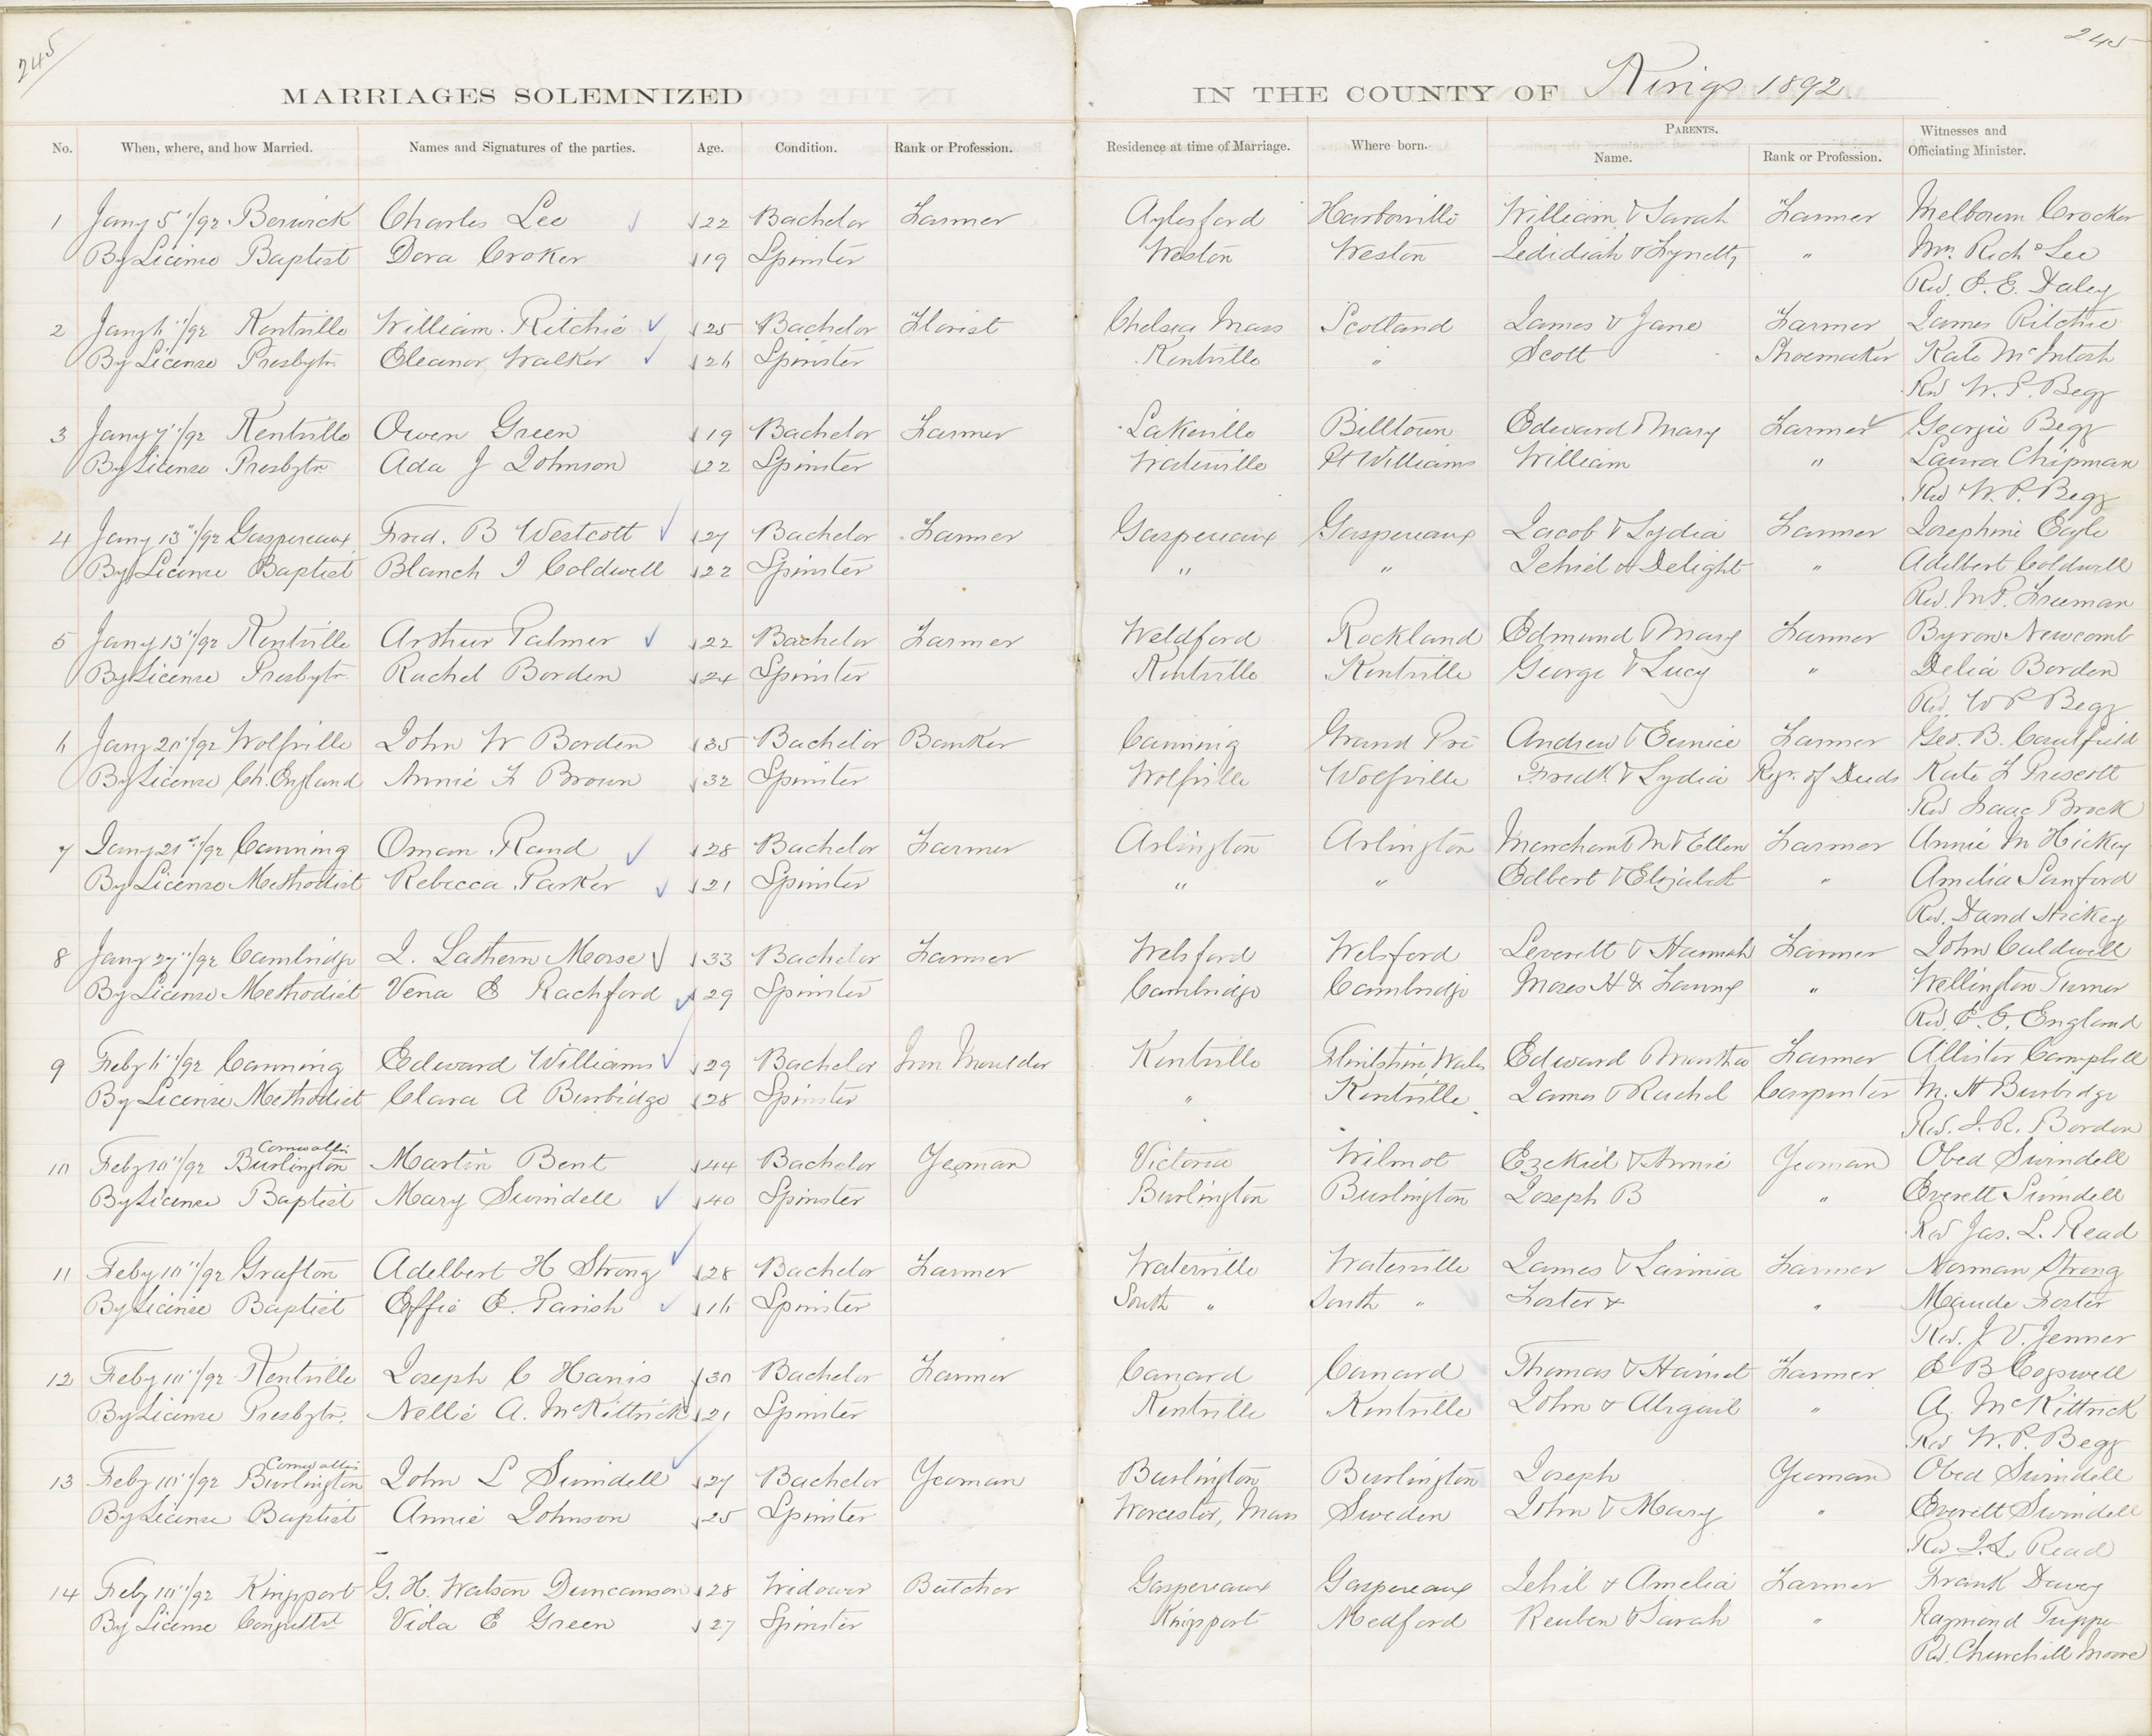 245
245
MARRIAGES SOLEMNIZED IN THE COUNTY OF Kings 1892
No. When, where, and how Married. Names and Signatures of the parties. Age. Condition. Rank or Profession. Residence at time of Marriage. Where born. PARENTS. Name. Rank or Profession. Witnesses and Officiating Minister.
1 Jany 5"/92 Berwick Charles Lee 22 Bachelor Farmer Aylesford Harborville William & Sarah Farmer Melbourn Crocker
By License Baptist Dora Croker 19 Spinster Weston Weston Jedidiah & " Mrs. Richd Lee
Rev. J. E. Daley
2 Jany 6"/92 Kentville William Ritchie 25 Bachelor Florist Chelsea Mass Scotland James & Jane Farmer James Ritchie
By License Presbytn. Eleanor Walker 26 Spinster Kentville " Scott Shoemaker Kate McIntosh
Rev W. P. Begg
3 Jany 7"/92 Kentville Owen Green 19 Bachelor Farmer Lakeville Billtown Edward & Mary Farmer Georgie Begg
By License Presbytn Ada J Johnson 22 Spinster Waterville Pt Williams William " Laura Chipman
Rev W. P. Begg
4 Jany 13"/92 Gaspereaux Fred. B Westcott 27 Bachelor Farmer Gaspereaux Gaspereaux Jacob & Lydia Farmer Josephine Eagle
By License Baptist Blanch I Coldwell 22 Spinster " " Jehiel & Delight " Adelbert Coldwell
Rev. M. P. Freeman
5 Jany 13"/92 Kentville Arthur Palmer 22 Bachelor Farmer Weldford Rockland Edmund & Mary Farmer Byron Newcomb
By License Presbytn Rachel Borden 24 Spinster Kentville Kentville George & Lucy " Delia Borden
Rev. W P Begg
6 Jany 20"/92 Wolfville John W Borden 35 Bachelor Banker Canning Grand Pré Andrew & Eunice Farmer Geo. B. Caulfield
By License Ch. England Annie F Brown 32 Spinster Wolfville Wolfville Fredk & Lydia Regr. of Deeds Kate F Prescott
Rev Isaac Brock
7 Jany 21st/92 Canning Oman Rand 28 Bachelor Farmer Arlington Arlington Marchant M & Ellen Farmer Annie M Hickey
By License Methodist Rebecca Parker 21 Spinster " " Edbert & Elizabeth " Amelia Sanford
Rev. David Hickey
8 Jany 27"/92 Cambridge J. Lathern Morse 33 Bachelor Farmer Welsford Welsford Leverett & Hannah Farmer John Caldwell
By License Methodist Vena E Rachford 29 Spinster Cambridge Cambridge Moses H & Fanny " Wellington Turner
Rev. E. E. England
9 Feby 6"/92 Canning Edward Williams 29 Bachelor Iron Moulder Kentville Flintshire, Wales Edward & Martha Farmer Allister Campbell
By License Methodist Clara A Burbidge 28 Spinster " Kentville James & Rachel Carpenter M. H Burbidge
Rev. J. R. Borden
Cornwallis
10 Feby 10"/92 Burlington Martin Bent 44 Bachelor Yeoman Victoria Wilmot Ezekiel & Annie Yeoman Obed Swindell
By License Baptist Mary Swindell 40 Spinster Burlington Burlington Joseph B " Everett Swindell
Rev Jas. L. Read
11 Feby 10"/92 Grafton Adelbert H Strong 28 Bachelor Farmer Waterville Waterville James & Lavinia Farmer Norman Strong
By License Baptist Effie E. Parish 16 Spinster South " South " Foster & " Maude Foster
Rev. J. V. Jenner
12 Feby 10"/92 Kentville Joseph C Harris 30 Bachelor Farmer Canard Canard Thomas & Harriet Farmer E B Cogswell
By License Presbytn. Nellie A. McKittrick 21 Spinster Kentville Kentville John & Abigail " A. McKittrick
Rev W. P. Begg
Cornwallis
13 Feby 10"/92 Burlington John L Swindell 27 Bachelor Yeoman Burlington Burlington Joseph Yeoman Obed Swindell
By License Baptist Annie Johnson 25 Spinster Worcester, Mass Sweden John & Mary " Everett Swindell
Rev J. L. Read
14 Feby 10"/92 Kingsport G. H. Watson Duncanson 28 Widower Butcher Gaspereaux Gaspereaux Jehil & Amelia Farmer Frank Davey
By License Viola E Green 27 Spinster Kingsport Medford Reuben & Sarah " Raymond Tupper
Rev. Churchill Moore